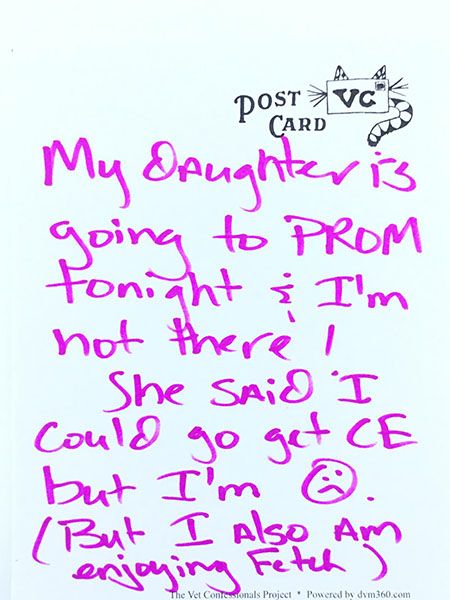 POST
CARD
VC
My Daughter is
going to PROM
tonight & I'm
not there!
She SAID I
could go get CE
but I'm ☹.
(But I Also Am
enjoying Fetch)
The Vet Confessionals Project * Powered by dvm360.com